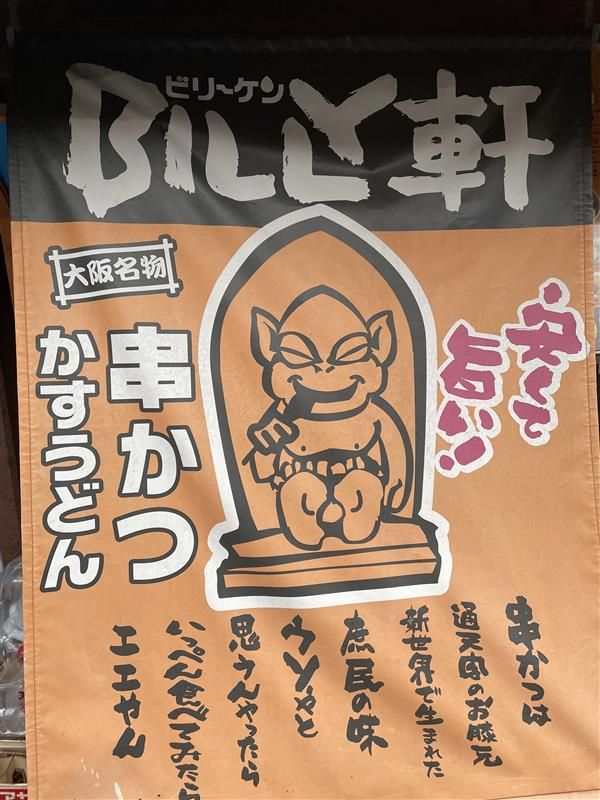 ビリーケン
BILLY軒
大阪名物
串かつ
かすうどん
安くて
旨い!
串かつは
通天閣のお膝元
新世界で生まれた
庶民の味
ウソやと
思うんやったら
いっぺん食べてみたら
エエやん